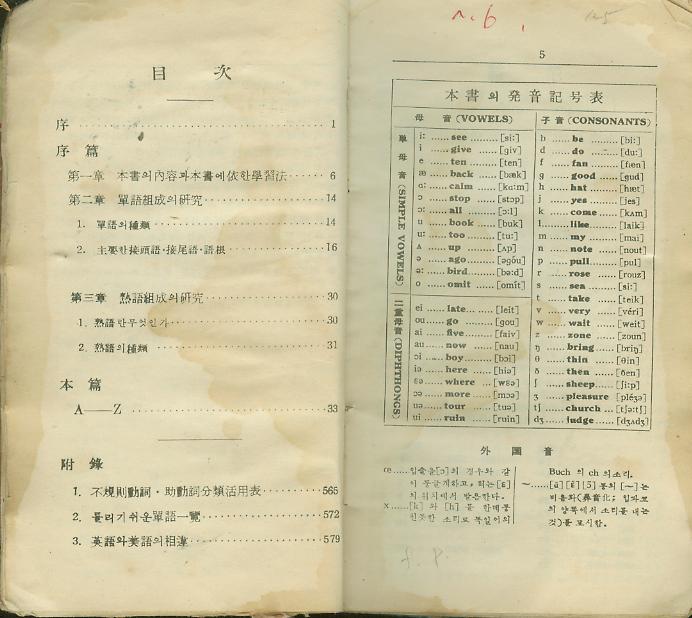 目 次
序 1
序 篇
第一章 本書의內容과本書에依한學習法 6
第二章 單語組成의研究 14
1. 單語의種類 14
2. 主要한接頭語·接尾語·語根 16
第三章 熟語組成의研究 30
1. 熟語란무엇인가 30
2. 熟語의種類 31
本 篇
A——Z 33
附 錄
1. 不規則動詞·助動詞分類活用表 565
2. 틀리기쉬운單語一覽 572
3. 英語와美語의相違 579
5
本書의発音記号表
母 音 (VOWELS)
單母音 (SIMPLE VOWELS)
i: ...... see ...... [si:]
i ...... give ...... [giv]
e ...... ten ...... [ten]
æ ...... back ...... [bæk]
ɑ: ...... calm ...... [kɑ:m]
ɔ ...... stop ...... [stɔp]
ɔ: ...... all ...... [ɔ:l]
u ...... book ...... [buk]
u: ...... too ...... [tu:]
ʌ ...... up ...... [ʌp]
ə ...... ago ...... [əgóu]
ə: ...... bird ...... [bə:d]
o ...... omit ...... [omít]
二重母音 (DIPHTHONGS)
ei ...... late ...... [leit]
ou ...... go ...... [gou]
ai ...... five ...... [faiv]
au ...... now ...... [nau]
ɔi ...... boy ...... [bɔi]
iə ...... here ...... [hiə]
ɛə ...... where ...... [wɛə]
ɔə ...... more ...... [mɔə]
uə ...... tour ...... [tuə]
ui ...... ruin ...... [ruin]
子 音 (CONSONANTS)
b ...... be ...... [bi:]
d ...... do ...... [du:]
f ...... fan ...... [fæn]
g ...... good ...... [gud]
h ...... hat ...... [hæt]
j ...... yes ...... [jes]
k ...... come ...... [kʌm]
l ...... like ...... [laik]
m ...... my ...... [mai]
n ...... note ...... [nout]
p ...... pull ...... [pul]
r ...... rose ...... [rouz]
s ...... sea ...... [si:]
t ...... take ...... [teik]
v ...... very ...... [véri]
w ...... wait ...... [weit]
z ...... zone ...... [zoun]
ŋ ...... bring ...... [briŋ]
θ ...... thin ...... [θin]
ð ...... then ...... [ðen]
ʃ ...... sheep ...... [ʃi:p]
ʒ ...... pleasure ...... [pléʒə]
tʃ ...... church ...... [tʃə:tʃ]
dʒ ...... judge ...... [dʒʌdʒ]
外 国 音
œ ...... 입술을[ɔ]의 경우와 같
이 둥글게하고, 혀는[ɛ]
의 위치에서 발음한다.
x ...... [k] 와 [h] 를 한데뭉
친듯한 소리로 독일어의
Buch 의 ch 의소리.
~ ...... [ã] [ɛ̃] [ɔ̃] 등의 [~]는
비음화(鼻音化); 입과코
의 양쪽에서 소리를 내는
것)를 표시함.